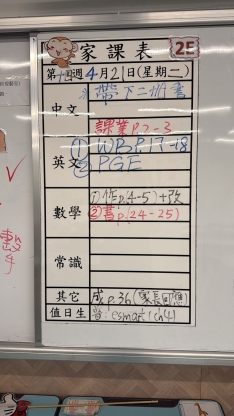 家課表 2E
第十四週4月21日(星期二)
中文 ※帶下二冊書
課業P.2-3
英文 ① WB P.17-18
② PGE
數學 ①作p.(4-5)+改
②書p.(24-25)
常識
其它 成p.36(家長回應)
值日生 普:esmart(ch4)